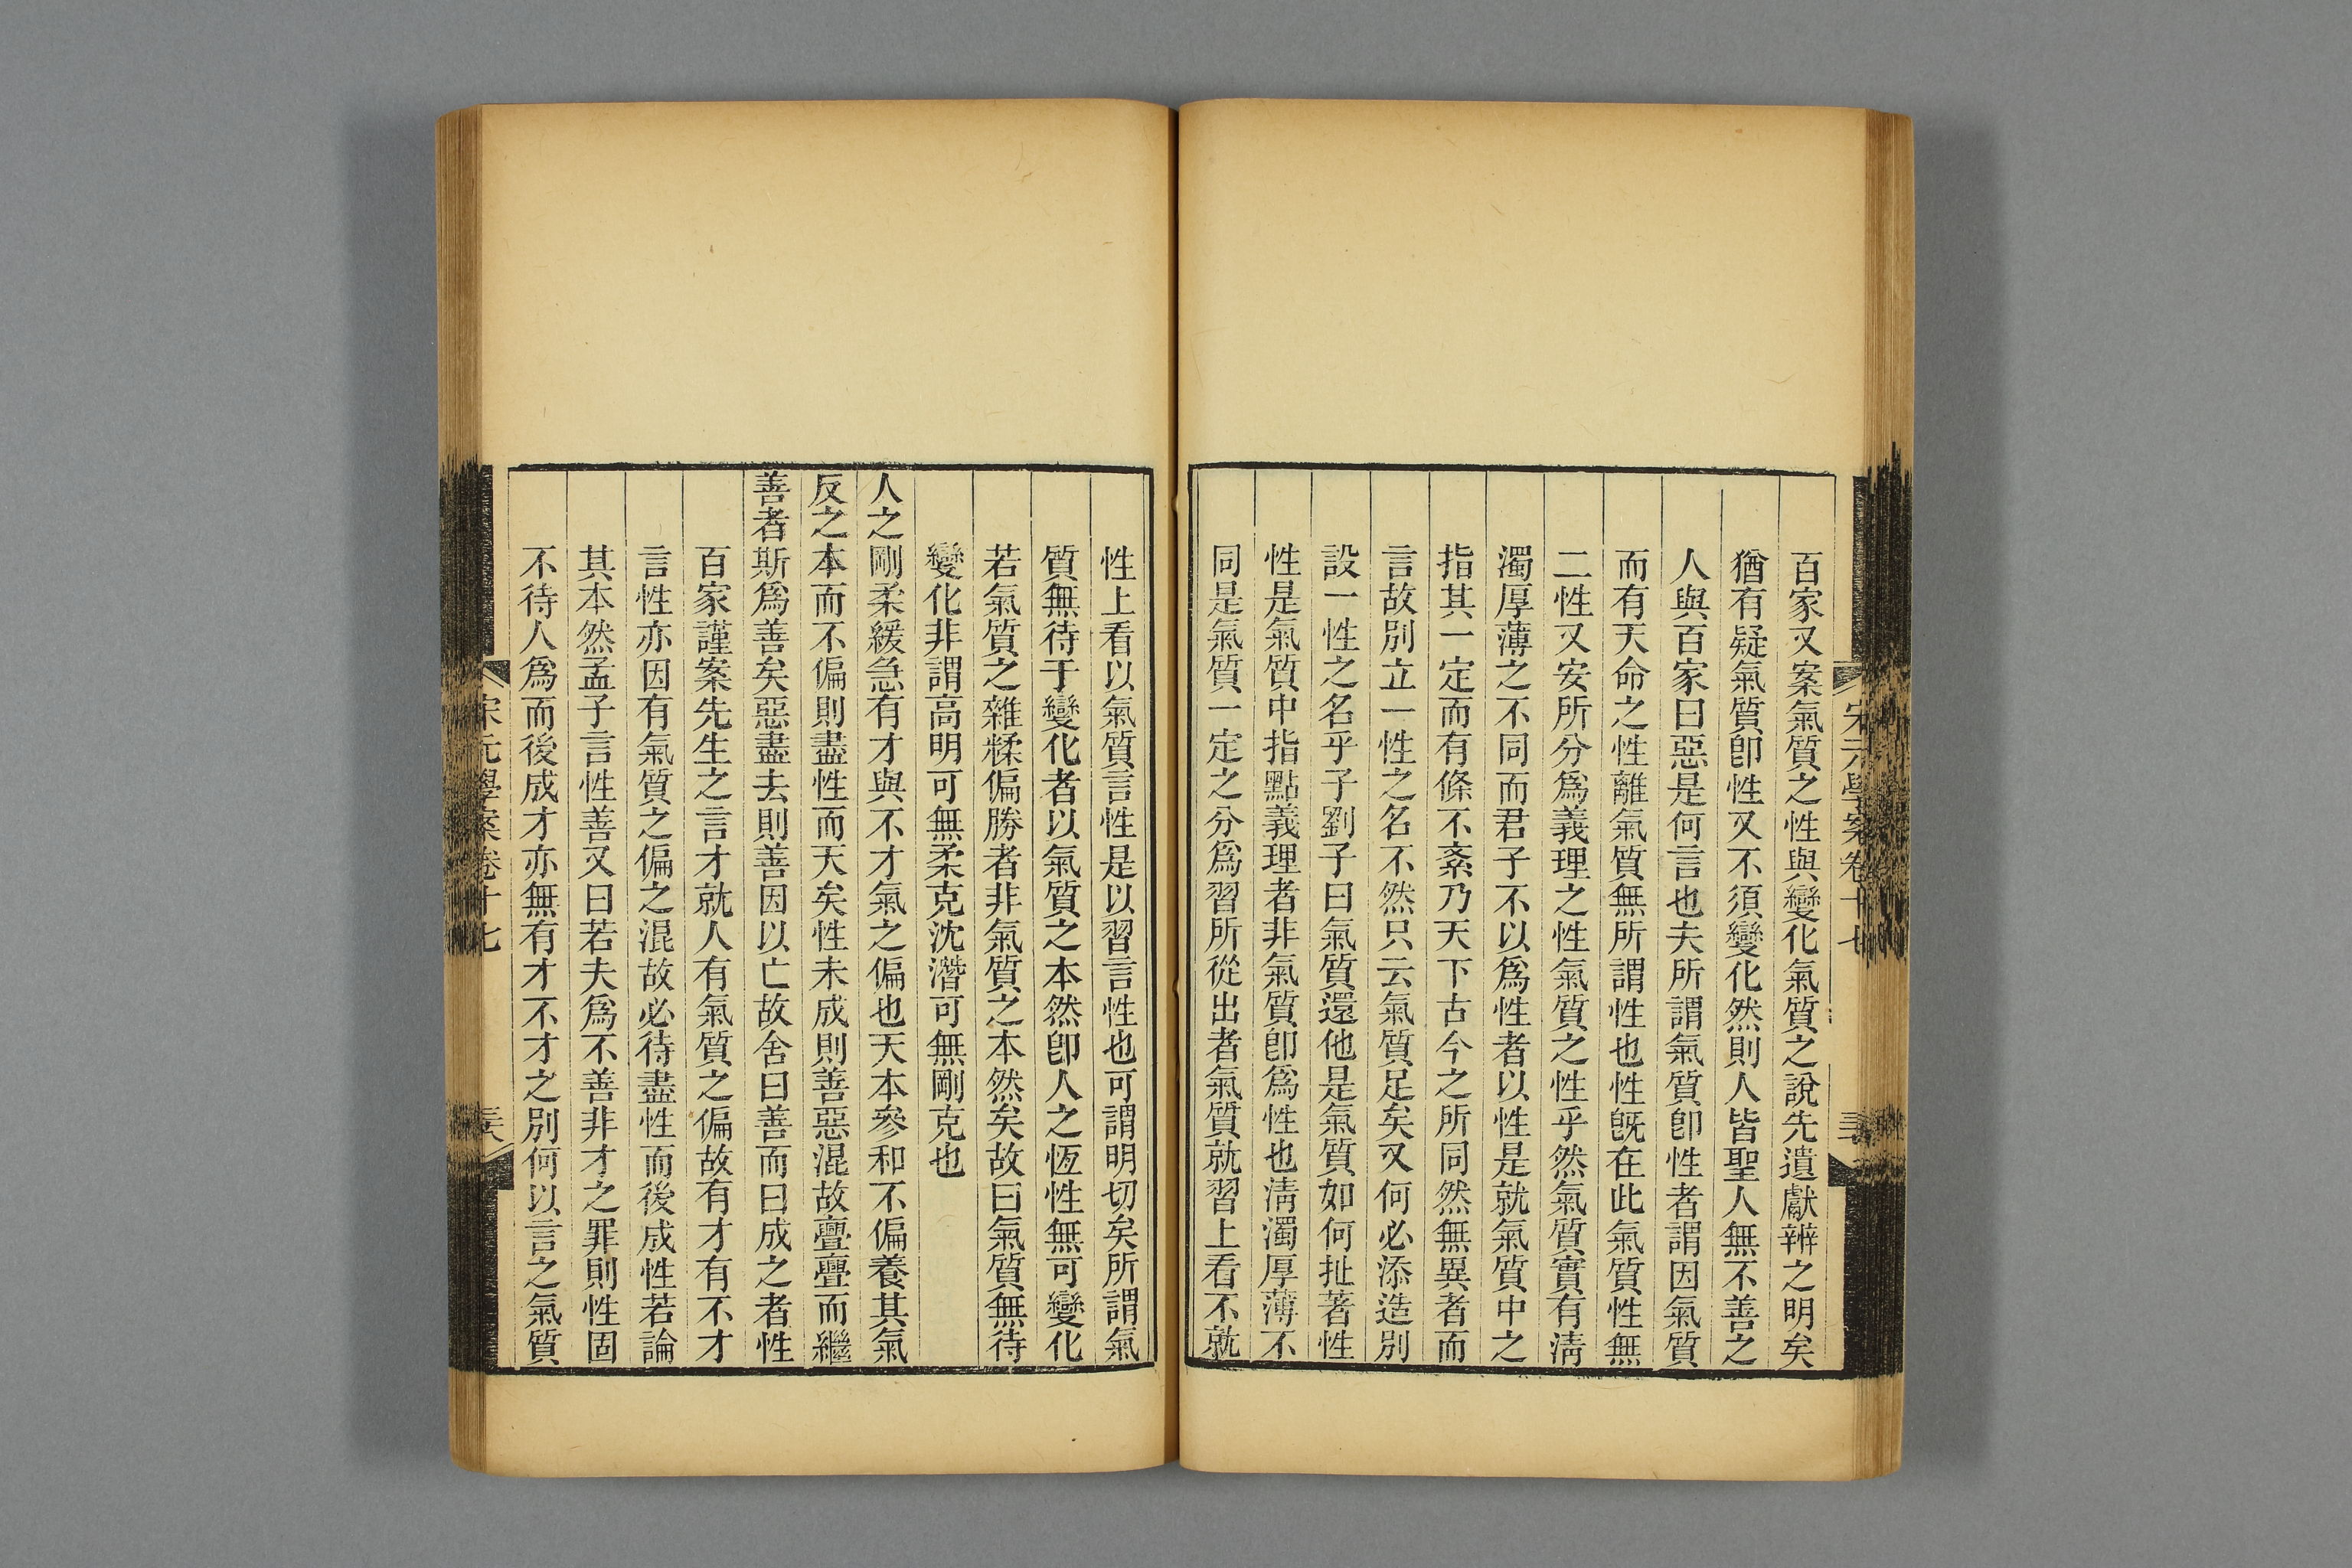 百家又案氣質之性與變化氣質之說先遺獻辨之明矣
猶有疑氣質卽性又不須變化然則人皆聖人無不善之
人與百家曰惡是何言也夫所謂氣質卽性者謂因氣質
而有天命之性離氣質無所謂性也性旣在此氣質性無
二性又安所分爲義理之性氣質之性乎然氣質實有淸
濁厚薄之不同而君子不以爲性者以性是就氣質中之
指其一定而有條不紊乃天下古今之所同然無異者而
言故別立一性之名不然只云氣質足矣又何必添造別
設一性之名乎子劉子曰氣質還他是氣質如何扯著性
性是氣質中指點義理者非氣質卽爲性也淸濁厚薄不
同是氣質一定之分爲習所從出者氣質就習上看不就
性上看以氣質言性是以習言性也可謂明切矣所謂氣
質無待于變化者以氣質之本然卽人之恆性無可變化
若氣質之雜糅偏勝者非氣質之本然矣故曰氣質無待
變化非謂高明可無柔克沈潛可無剛克也
人之剛柔緩急有才與不才氣之偏也天本參和不偏養其氣
反之本而不偏則盡性而天矣性未成則善惡混故亹亹而繼
善者斯爲善矣惡盡去則善因以亡故舍曰善而曰成之者性
百家謹案先生之言才就人有氣質之偏故有才有不才
言性亦因有氣質之偏之混故必待盡性而後成性若論
其本然孟子言性善又曰若夫爲不善非才之罪則性固
不待人爲而後成才亦無有才不才之別何以言之氣質
宋元學案卷十七